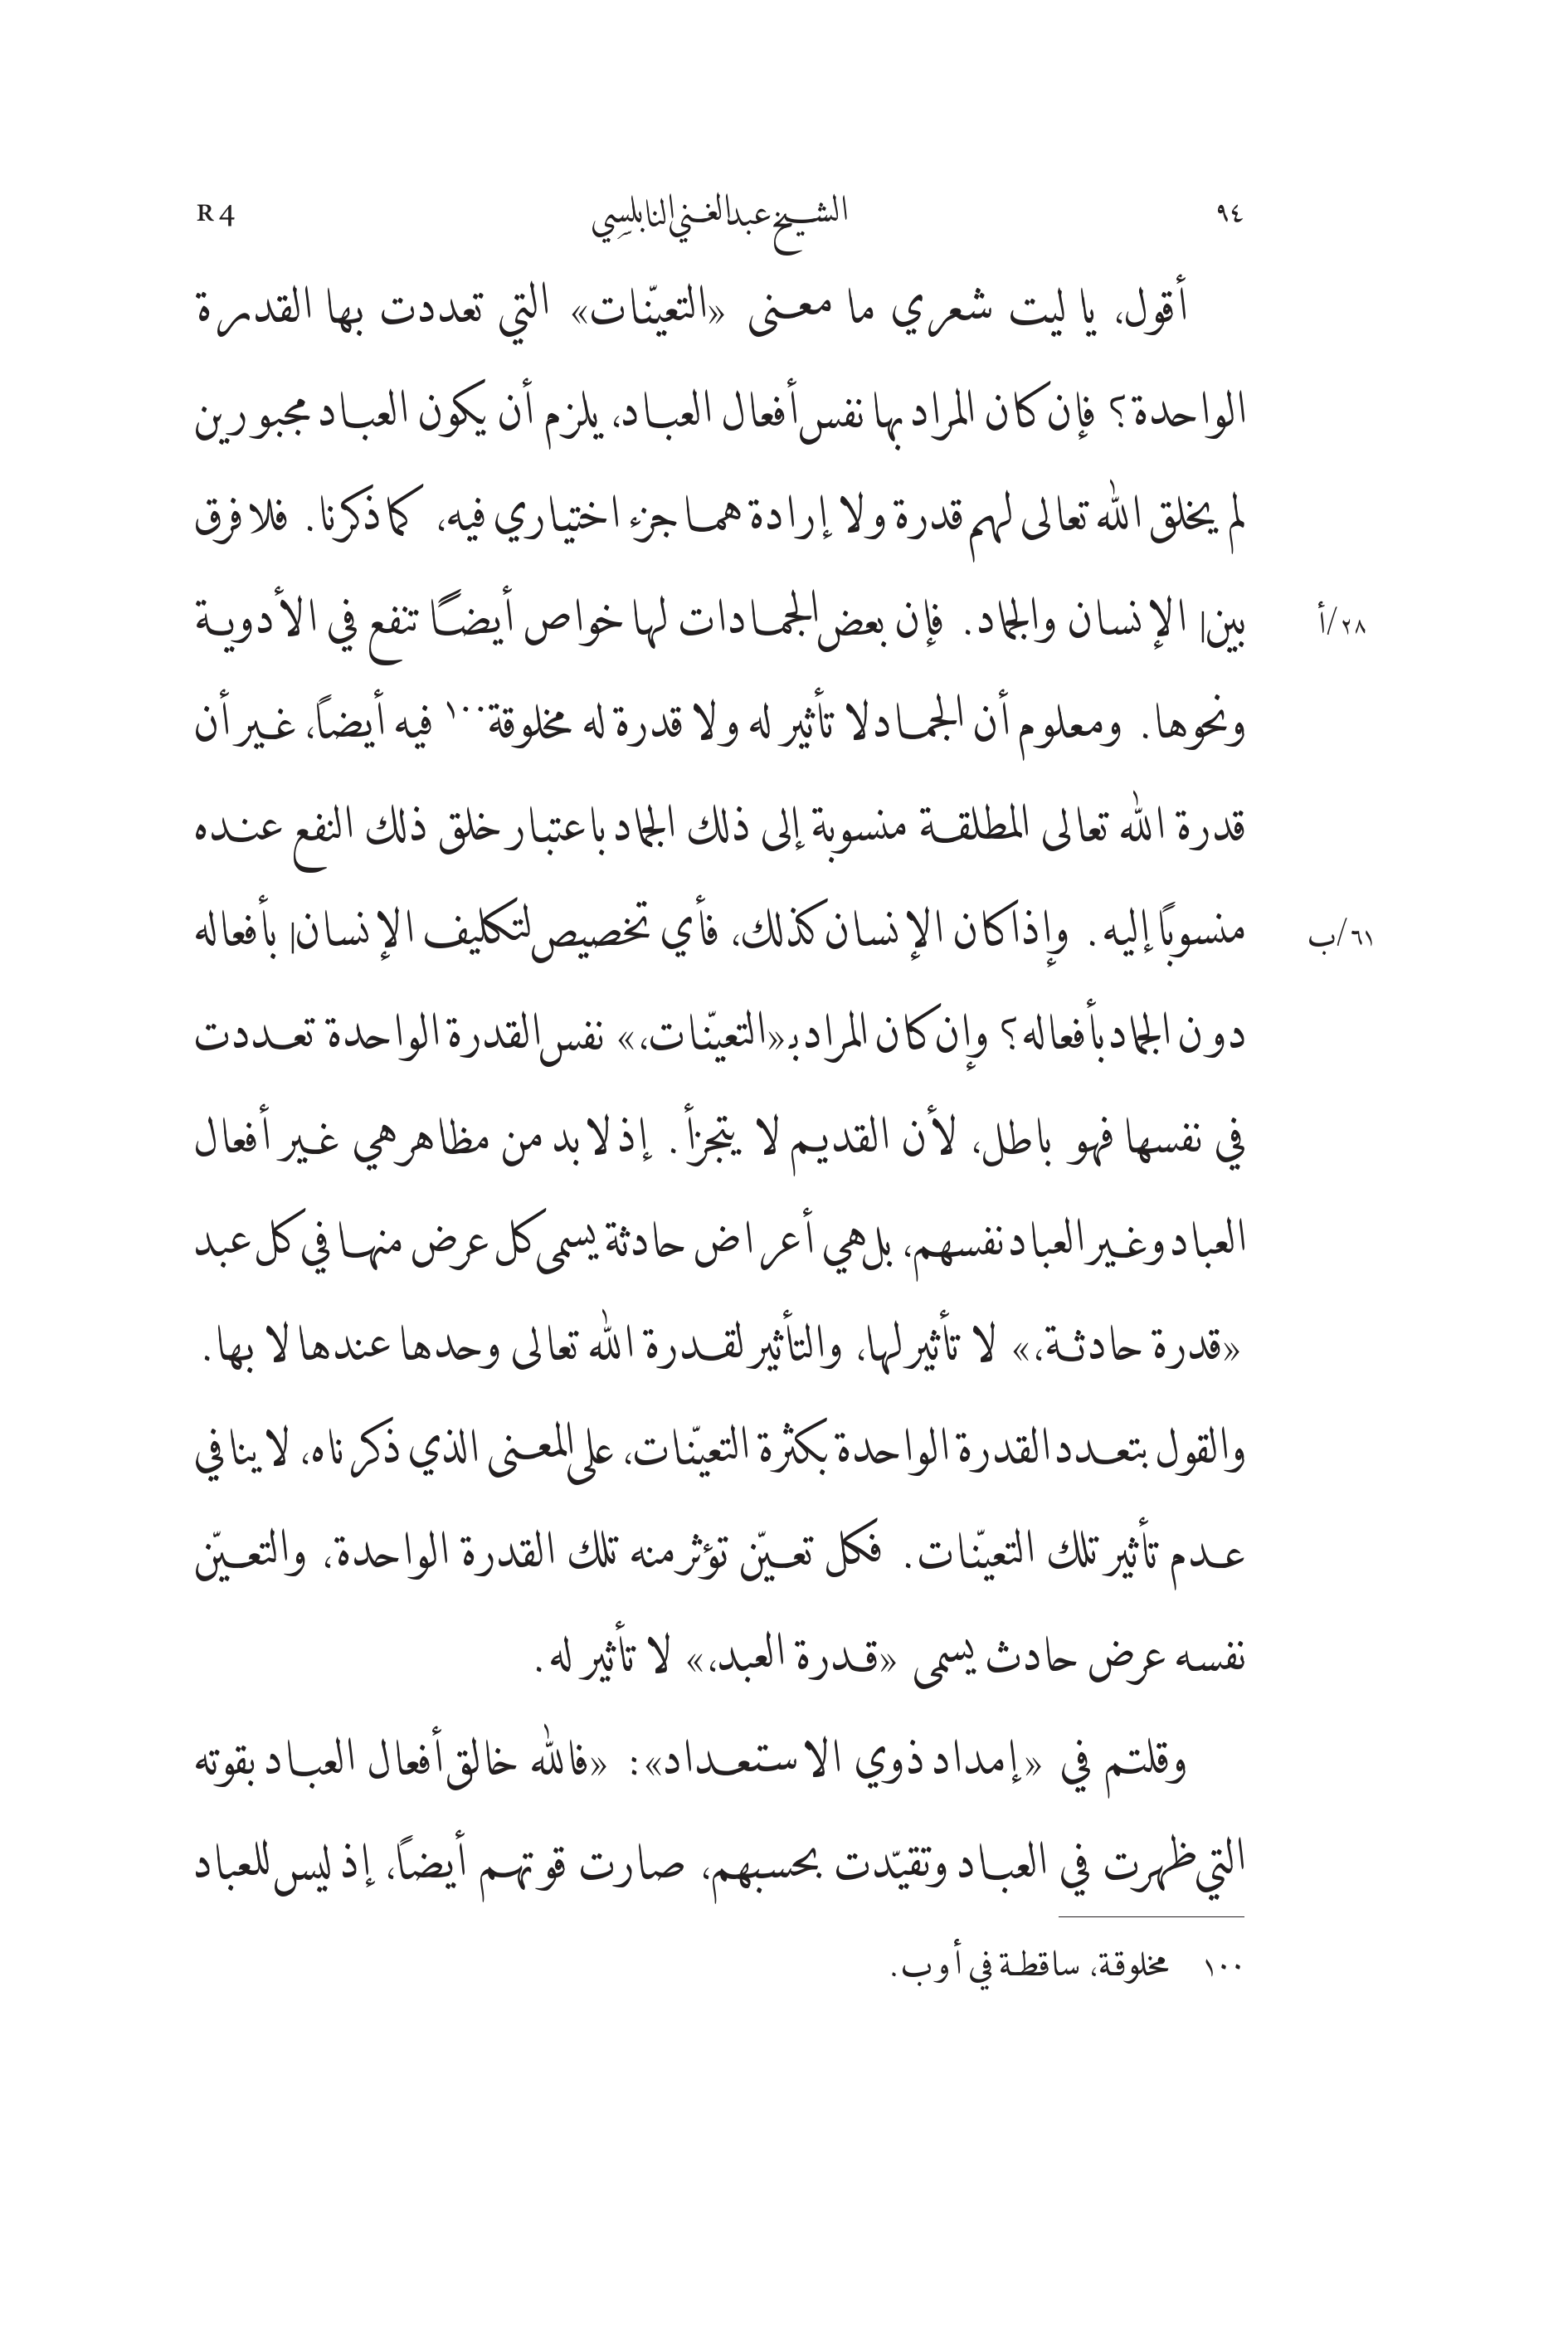 ٩٤ الشيخ عبد الغني النابلسي R 4
أقول، يا ليت شعري ما معنى «التعيّنات» التي تعددت بها القدرة
الواحدة؟ فإن كان المراد بها نفس أفعال العباد، يلزم أن يكون العباد مجبورين
لم يخلق الله تعالى لهم قدرة ولا إرادة هما جزء اختياري فيه، كما ذكرنا. فلا فرق
بين| الإنسان والجماد. فإن بعض الجمادات لها خواص أيضًا تنفع في الأدوية
٢٨/أ
ونحوها. ومعلوم أن الجماد لا تأثير له ولا قدرة له مخلوقة١٠٠ فيه أيضاً، غير أن
قدرة الله تعالى المطلقة منسوبة إلى ذلك الجماد باعتبار خلق ذلك النفع عنده
منسوبًا إليه. وإذا كان الإنسان كذلك، فأي تخصيص لتكليف الإنسان| بأفعاله
٦١/ب
دون الجماد بأفعاله؟ وإن كان المراد بـ«التعيّنات،» نفس القدرة الواحدة تعددت
في نفسها فهو باطل، لأن القديم لا يتجزأ. إذ لا بد من مظاهر هي غير أفعال
العباد وغير العباد نفسهم، بل هي أعراض حادثة يسمى كل عرض منها في كل عبد
«قدرة حادثة،» لا تأثير لها، والتأثير لقدرة الله تعالى وحدها عندها لا بها.
والقول بتعدد القدرة الواحدة بكثرة التعيّنات، على المعنى الذي ذكرناه، لا ينافي
عدم تأثير تلك التعيّنات. فكل تعيّن تؤثر منه تلك القدرة الواحدة، والتعيّن
نفسه عرض حادث يسمى «قدرة العبد،» لا تأثير له.
وقلتم في «إمداد ذوي الاستعداد»: «فالله خالق أفعال العباد بقوته
التي ظهرت في العباد وتقيّدت بحسبهم، صارت قوتهم أيضاً، إذ ليس للعباد
١٠٠ مخلوقة، ساقطة في أ و ب.